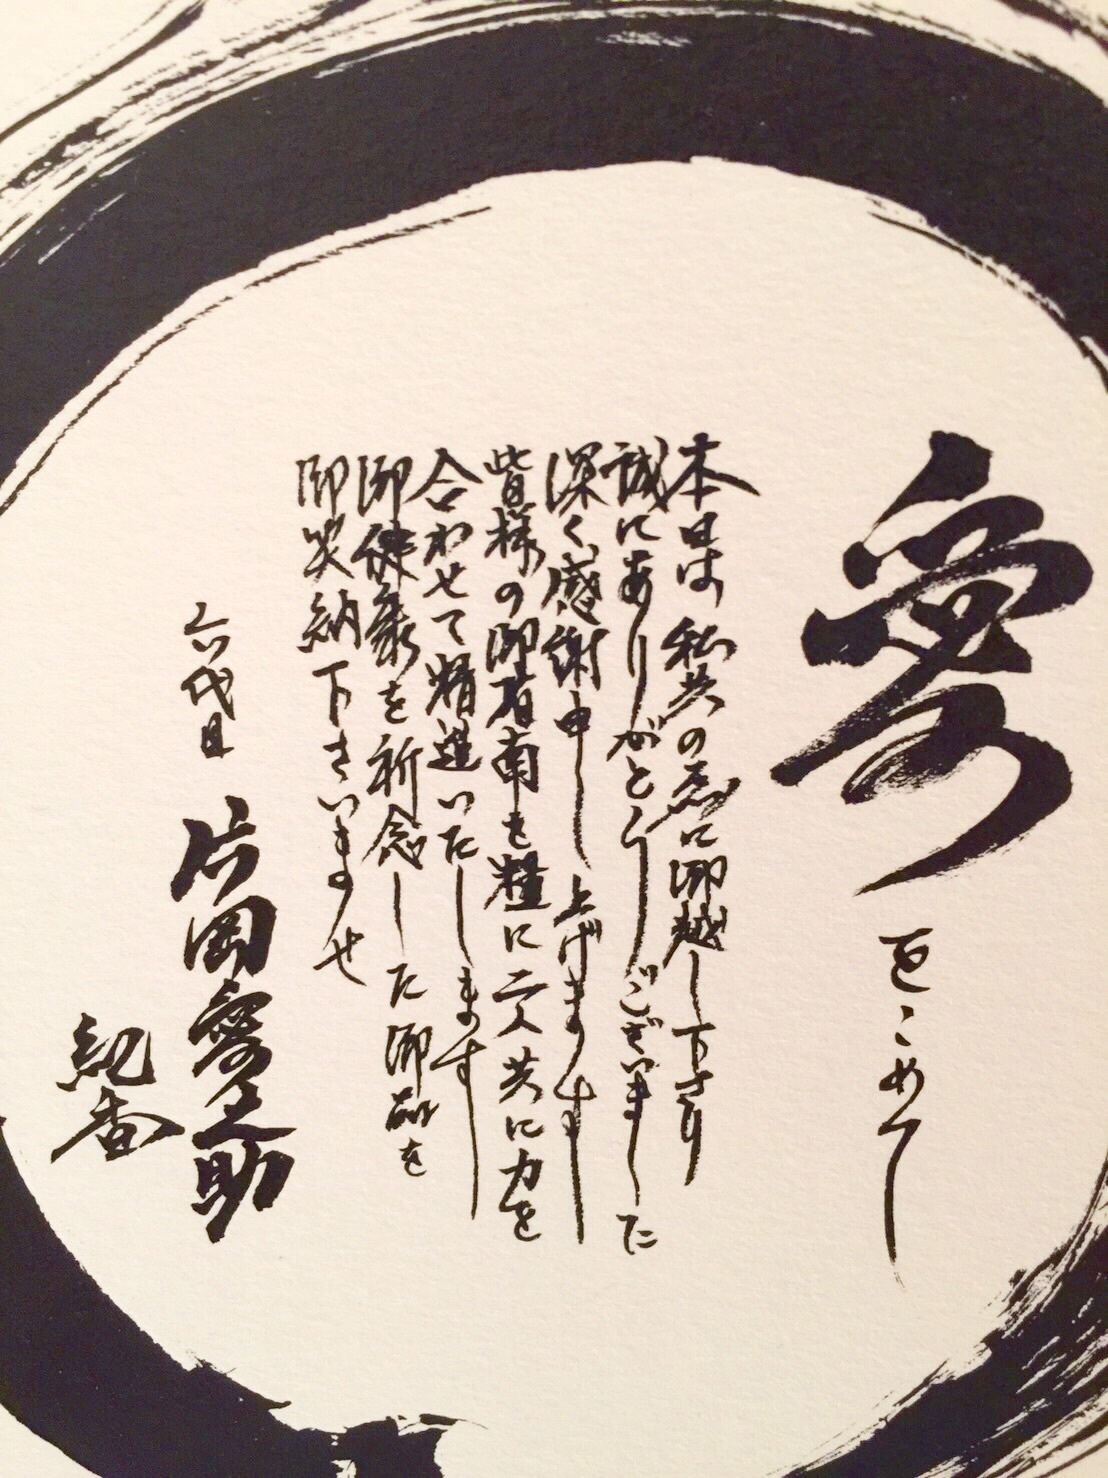 愛をこめて
本日は私共の為に御越し下さり
誠にありがとうございました
深く感謝申し上げます
皆様の御指南を糧に二人共に力を
合わせて精進いたします
御健康を祈念した御品を
御笑納下さいませ
六代目 片岡愛之助
紀香